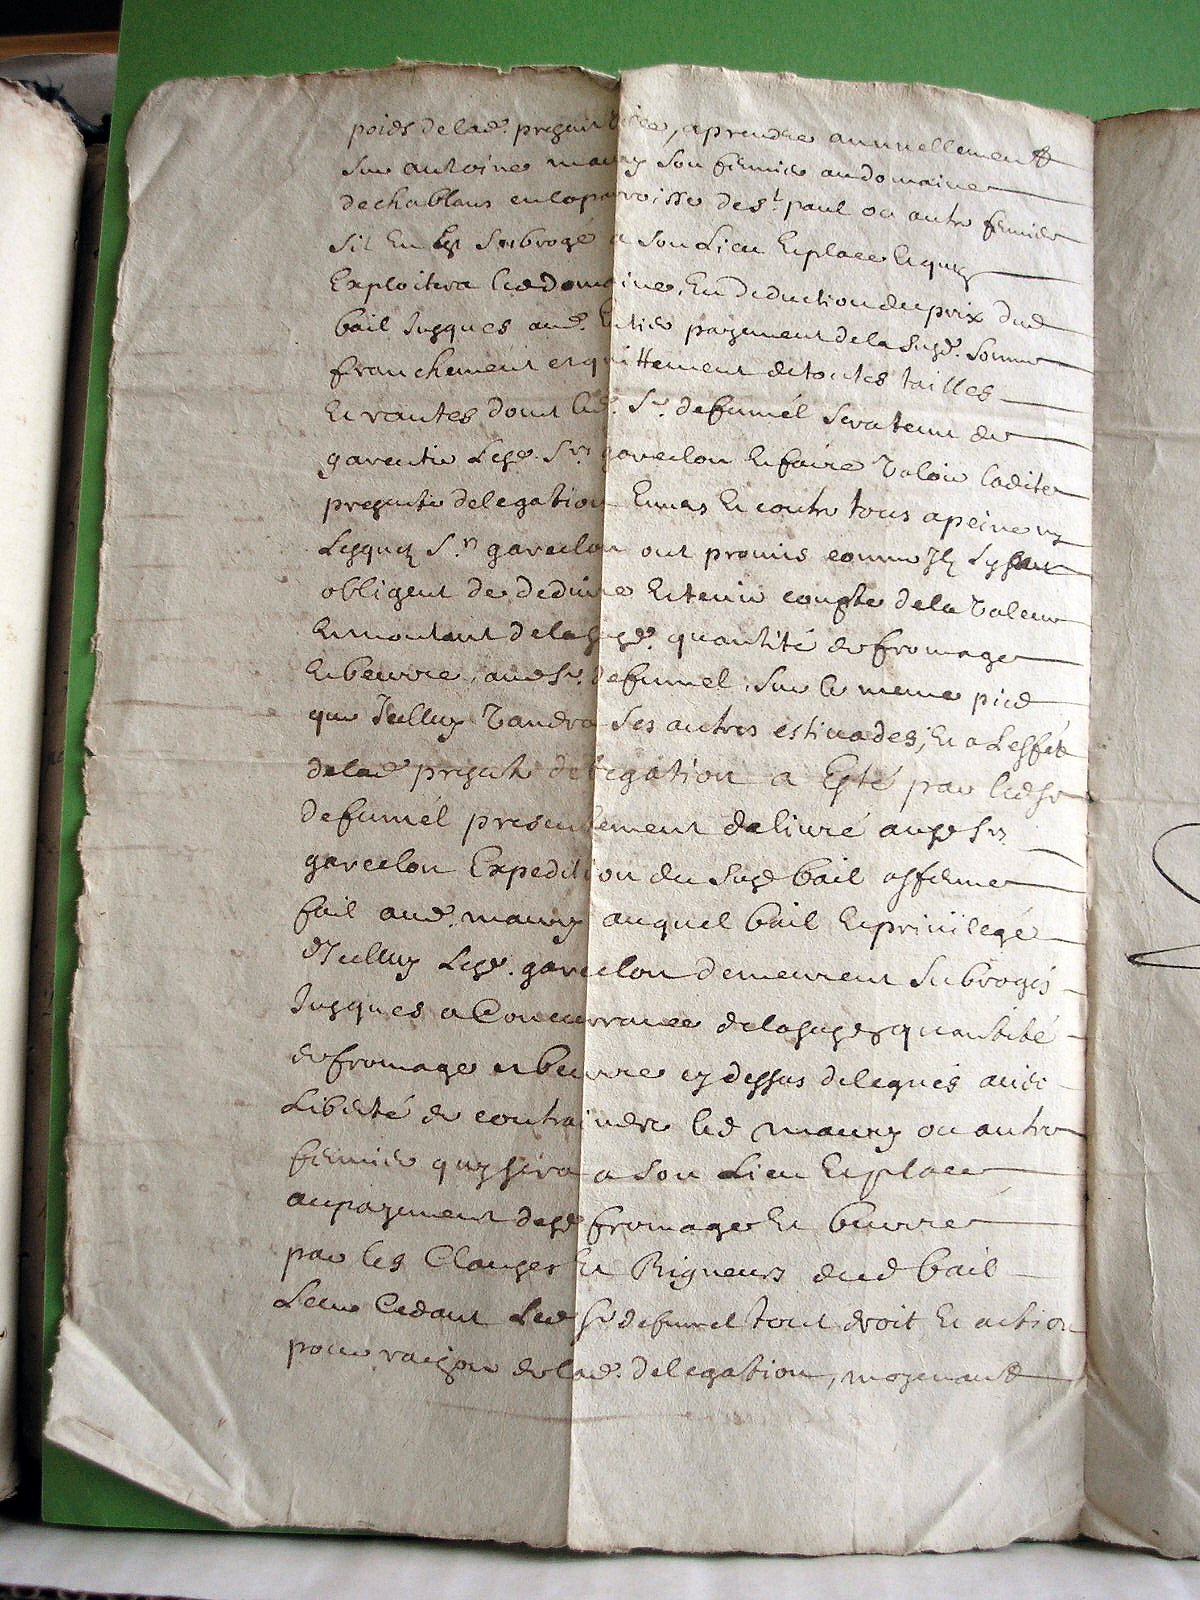 poids de lad. presant ville, aprendre annuellement
sur antoine maury son fermier audomaine
dechablans enlaparroisse de st paul ou autre fermier
sil En Est Subrogé a son Lieu Explace Et quy
Exploitera led domaine, En deduction duprix dud
bail Jusques aud. Entier payement dela susd. somme
franchement et quittement detoutes tailles
Et rantes dont led. Sr. defumél sera tenu de
garentir Lesd. Srs garcelon Et faire Valoir ladite
presente delegation Envers Et contre tous apeine
Lesquels Srs garcelon ont promis comme Ils
obligent de deduire Et tenir compte dela Valeur
Et montant delasusd. quantité de fromage
Et beurre, aud Sr. defumel, sur le meme pied
que Jcelluy Vandra ses autres estivades, Et a L'esfét
delad presente delegation a Esté par led Sr
defumél presentement delivré ausd Srs
garcelon Expedition du susd bail asferme
fait aud. maury auquel bail Et privilegé
d'Jcelluy Lesd. garcelon demeurent subrogés
Jusques a Concurrance delasusd quantité
de fromage et beurre cy dessus delegués avec
Liberté de contraindre led maury ou autre
fermier quy sera a son Lieu Et place
aupayement desd fromage Et beurre
par les Clauses Et Rigueurs dud bail
Leur Cedant Led Sr defumel tout droit Et action
pour raison de lad. delegation, moyenant